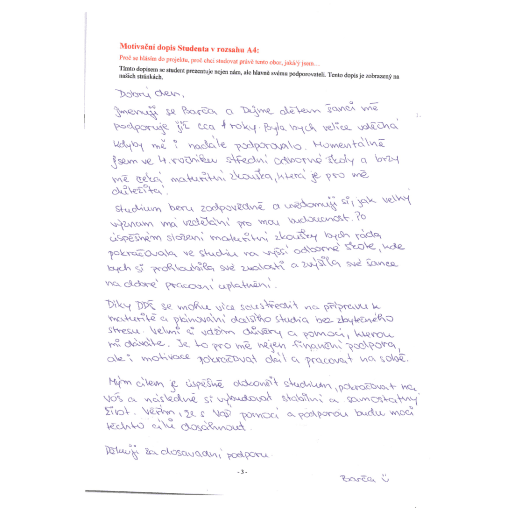 Motivační dopis Studenta v rozsahu A4:
Proč se hlásím do projektu, proč chci studovat právě tento obor, jaký/á jsem…
Tímto dopisem se student prezentuje nejen nám, ale hlavně svému podporovateli. Tento dopis je zobrazený na
našich stránkách.
Dobrý den,
jmenuji se Barča a Dejme dětem šanci mě
podporuje již cca 4 roky. Byla bych velice vděčná
kdyby mě i nadále podporovalo. Momentálně
jsem ve 4. ročníku střední odborné školy a brzy
mě čeká maturitní zkouška, která je pro mě
důležitá.
Studium beru zodpovědně a uvědomuji si, jak velký
význam má vzdělání pro mou budoucnost. Po
úspěšném složení maturitní zkoušky bych ráda
pokračovala ve studiu na vyšší odborné škole, kde
bych si prohloubila své znalosti a zvýšila své šance
na dobré pracovní uplatnění.
Díky DDŠ se mohu více soustředit na přípravu k
maturitě a plánování dalšího studia bez zbytečného
stresu. Velmi si vážím důvěry a pomoci, kterou
mi dáváte. Je to pro mě nejen finanční podpora,
ale i motivace pokračovat dál a pracovat na sobě.
Mým cílem je úspěšně dokončit studium, pokračovat na
VOŠ a následně si vybudovat stabilní a samostatný
život. Věřím, že s Vaší pomocí a podporou budu moci
těchto cílů dosáhnout.
Děkuji za dosavadní podporu.
- 3 -
Barča